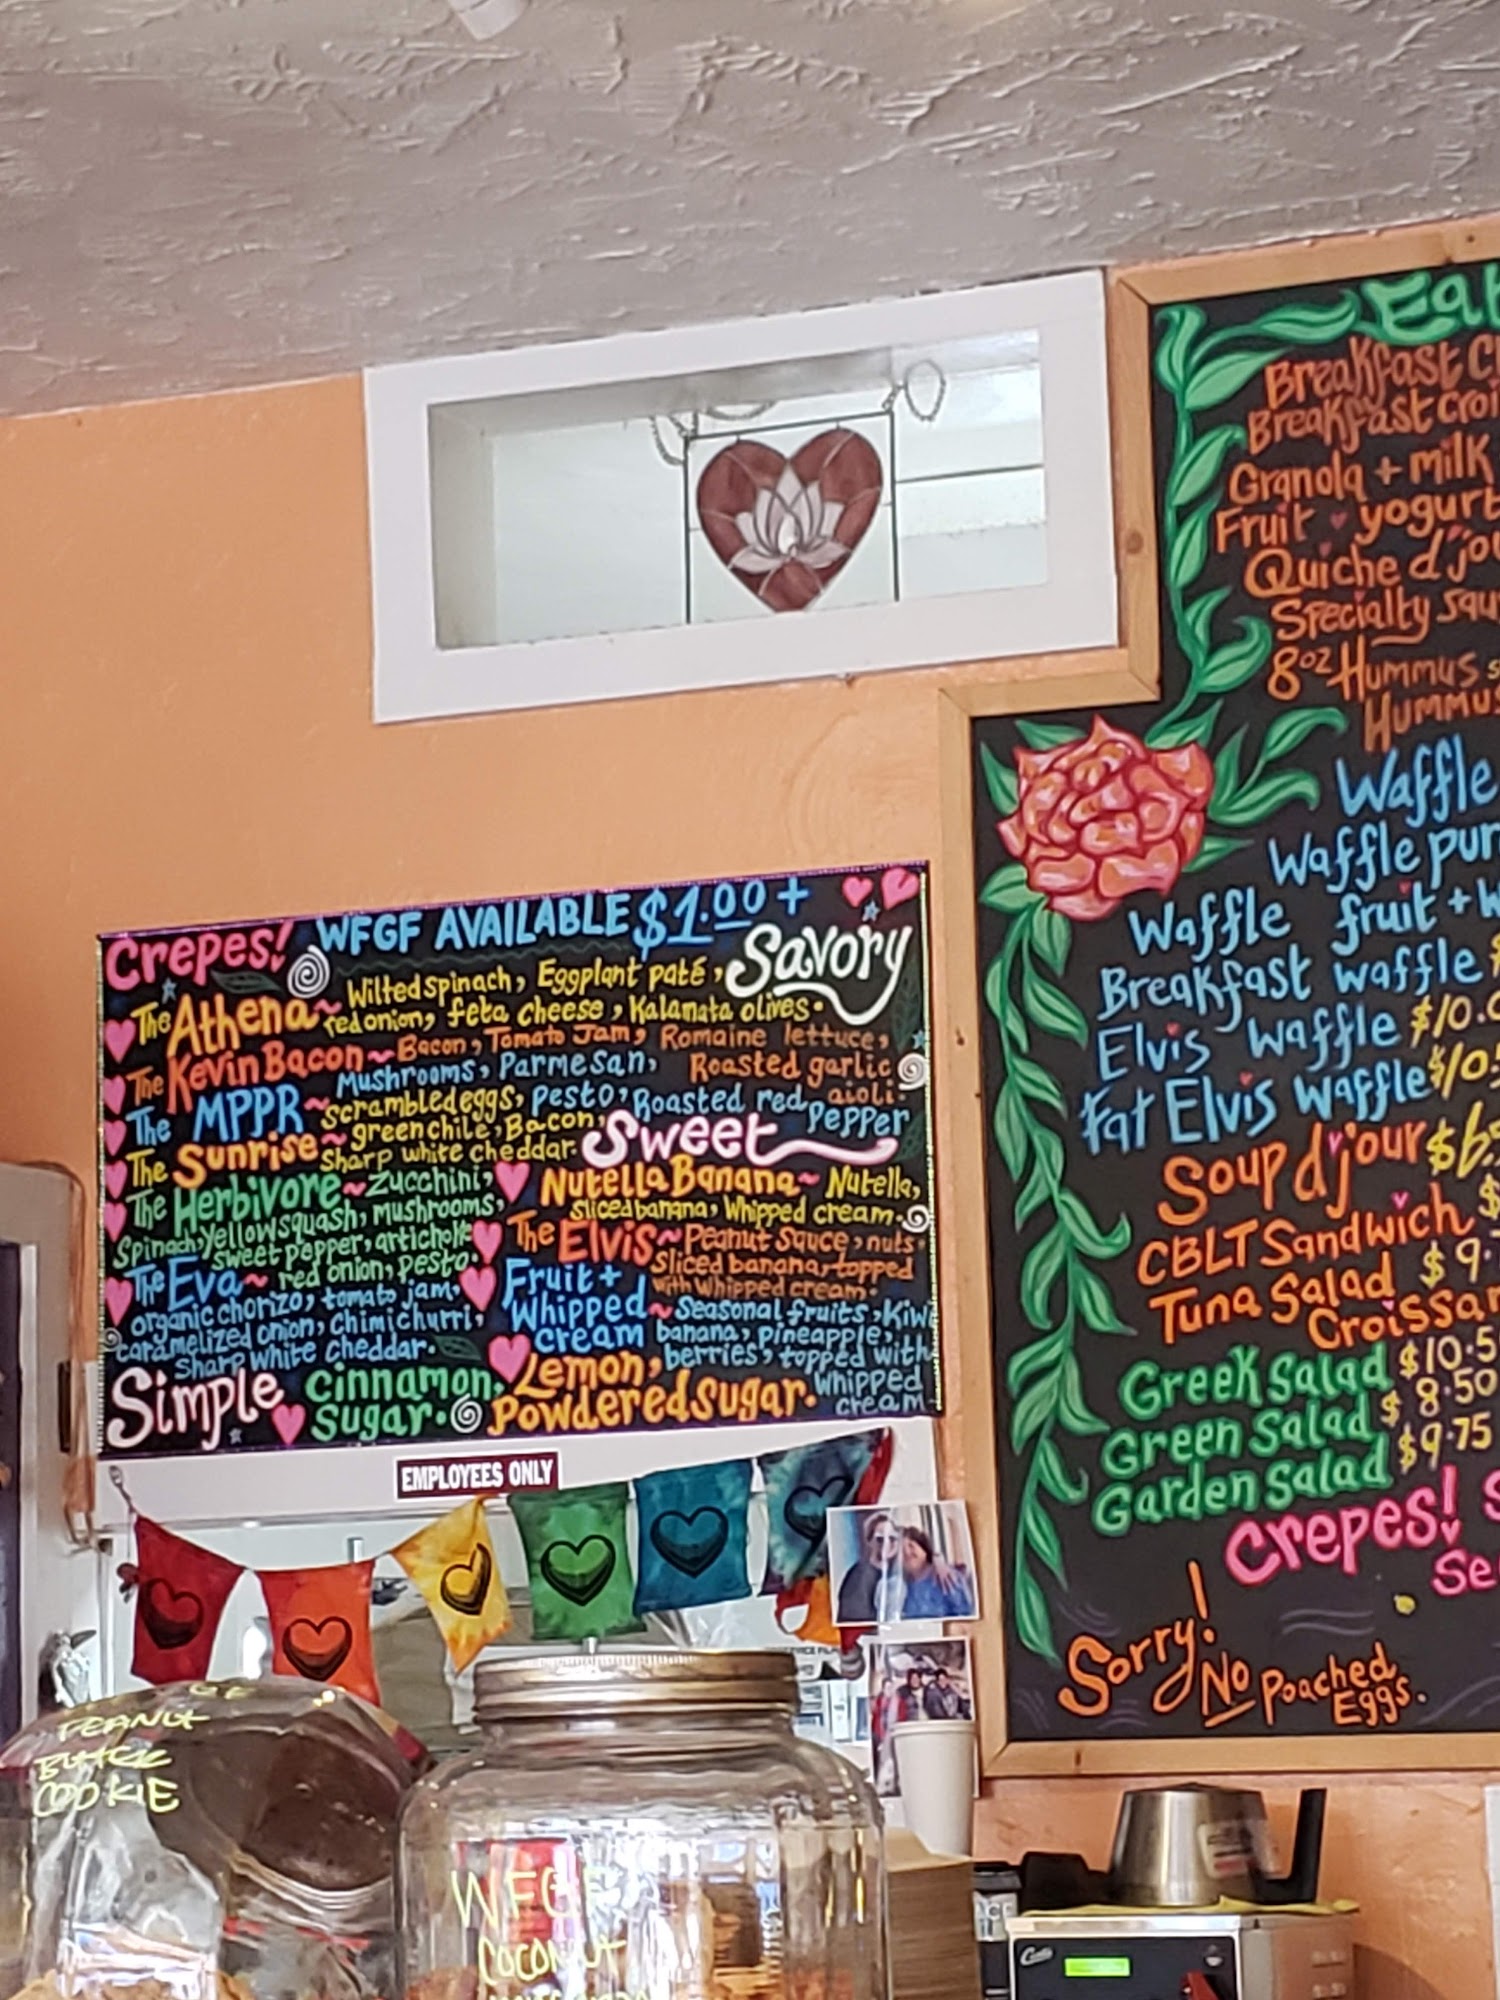 Crepes! WFGF AVAILABLE $1.00+
Savory
The Athena ~ Wilted spinach, Eggplant paté,
red onion, feta cheese, Kalamata olives.
The Kevin Bacon ~ Bacon, Tomato Jam, Romaine lettuce,
Roasted garlic
aioli.
The MPPR ~ Mushrooms, Parmesan,
pesto, Roasted red
Pepper
The Sunrise ~ scrambled eggs,
green chile, Bacon,
sharp white cheddar.
The Herbivore ~ zucchini,
Spinach, yellow squash, mushrooms,
sweet pepper, artichoke
red onion, pesto.
The Eva ~
organic chorizo, tomato jam,
caramelized onion, chimichurri,
sharp white cheddar.
Sweet
Nutella Banana ~ Nutella,
sliced banana, Whipped cream.
The Elvis ~ Peanut sauce, nuts.
sliced banana, topped
with whipped cream.
Fruit +
Whipped
cream ~ seasonal fruits, Kiwi
banana, pineapple,
berries, topped with
whipped
cream
Simple
Cinnamon,
Sugar.
Lemon,
Powdered Sugar.
EMPLOYEES ONLY
Breakfast
Breakfast
Granola + milk
Fruit yogurt
Quiche d'jou
Specialty
8oz Hummus
Hummus
Waffle
Waffle
Waffle fruit +
Breakfast waffle
Elvis Waffle $10.
Fat Elvis Waffle $10.
Soup d'jour $6.
CBLT Sandwich $
Tuna Salad $9.
Croissan
Greek Salad $10.5
Green Salad $8.50
Garden Salad $9.75
Crepes!
Se
Sorry!
No Poached
Eggs.
PEANUT
BUTTER
COOKIE
WFGF
COCONUT
Curtis